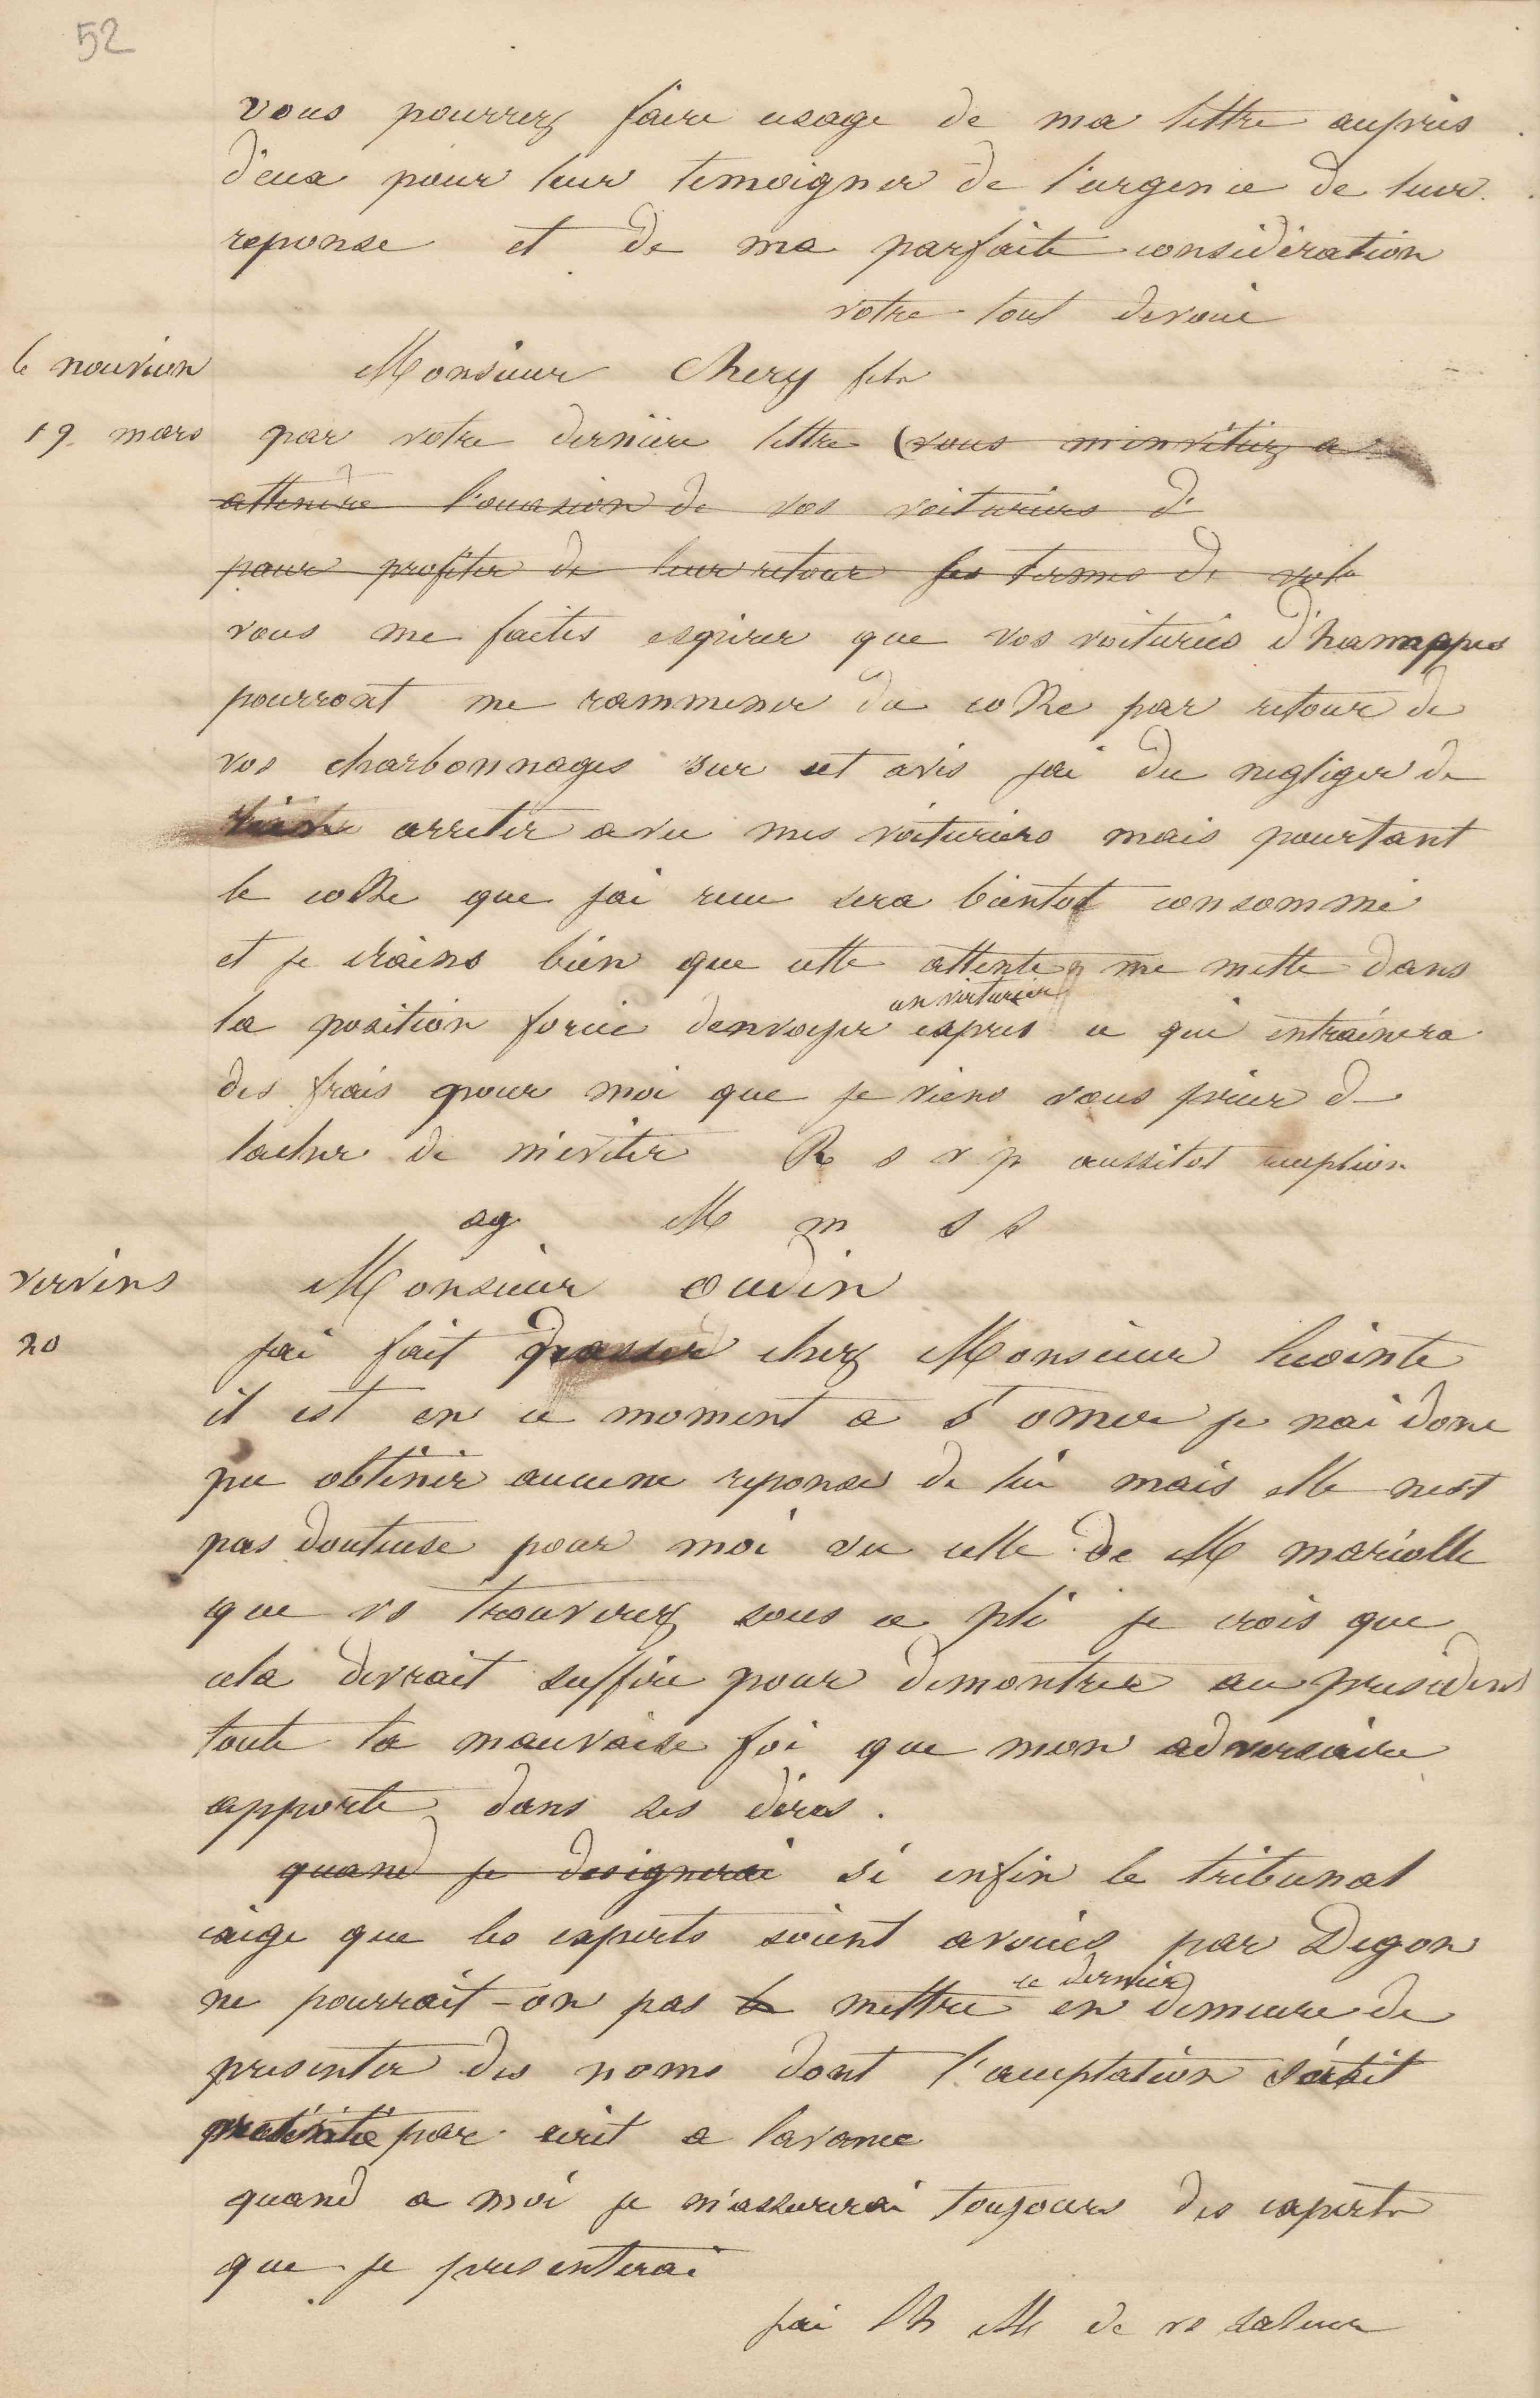 52
vous pourrez faire usage de ma lettre auprès
d'eux pour leur temoigner de l'urgence de leur
reponse et de ma parfaite considération
votre tout devoué
le nouvion
Monsieur Chery fils
19 mars
par votre dernière lettre (vous m'invitiez a
attendre l'occasion de vos voituriers d'
pour profiter de leur retour les termes de votre
vous me faites espérer que vos voituriers d'hannappes
pourront me rammener du coke par retour de
vos charbonnages sur cet avis jai du negliger de
arreter avec mes voituriers mais pourtant
le coke que jai recu sera bientot consommé
et je crains bien que cette attente me mette dans
un voiturier
la position forcée denvoyer expres ce qui entrainera
des frais pour moi que je viens vous prier de
tacher de m'eviter R s v p aussitot reception
ag M m s s
vervins
Monsieur oudin
20
jai fait passer chez Monsieur Lecointe
il est en ce moment a St omer je nai donc
pu obtenir aucune reponse de lui mais elle nest
pas douteuse pour moi vu celle de M mariolle
que vs trouverez sous ce pli je crois que
cela devrait suffire pour demontrer au president
toute la mauvaise foi que mon adversaire
apporte dans ses dires.
quand je designerai si enfin le tribunal
exige que les experts soient avoués par Degon
ce dernier
ne pourrait-on pas le mettre en demeure de
presenter des noms dont l'acceptation serait
par ecrit a lavance
quand a moi je m'assurerai toujours des experts
que je presenterai
jai lh de vs saluer